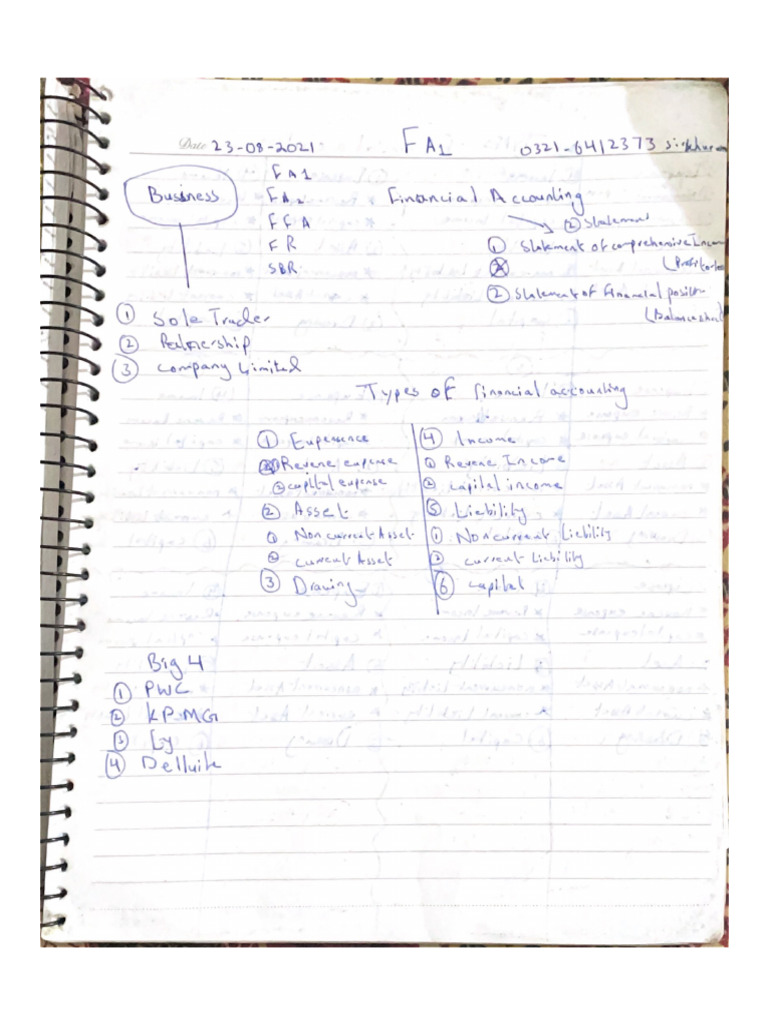 Date 23-08-2021 FA1 0321-6412373
Business
FA1
FA2
FFA
FR
SBR
Financial Accounting
② Statement
① Statement of comprehensive Income
② Statement of Financial
① Sole Trader
②
③ Company Limited
Types of financial accounting
① Experence
① Revene expense
② capital expense
② Asset
① Non current Asset
② current Asset
③ Drawing
④ Income
① Revene Income
② capital income
⑤ Liebility
① Noncurrent Liebility
② current Liebility
⑥ Capital
Big 4
① PWC
② KPMG
③ Ey
④ Delluite